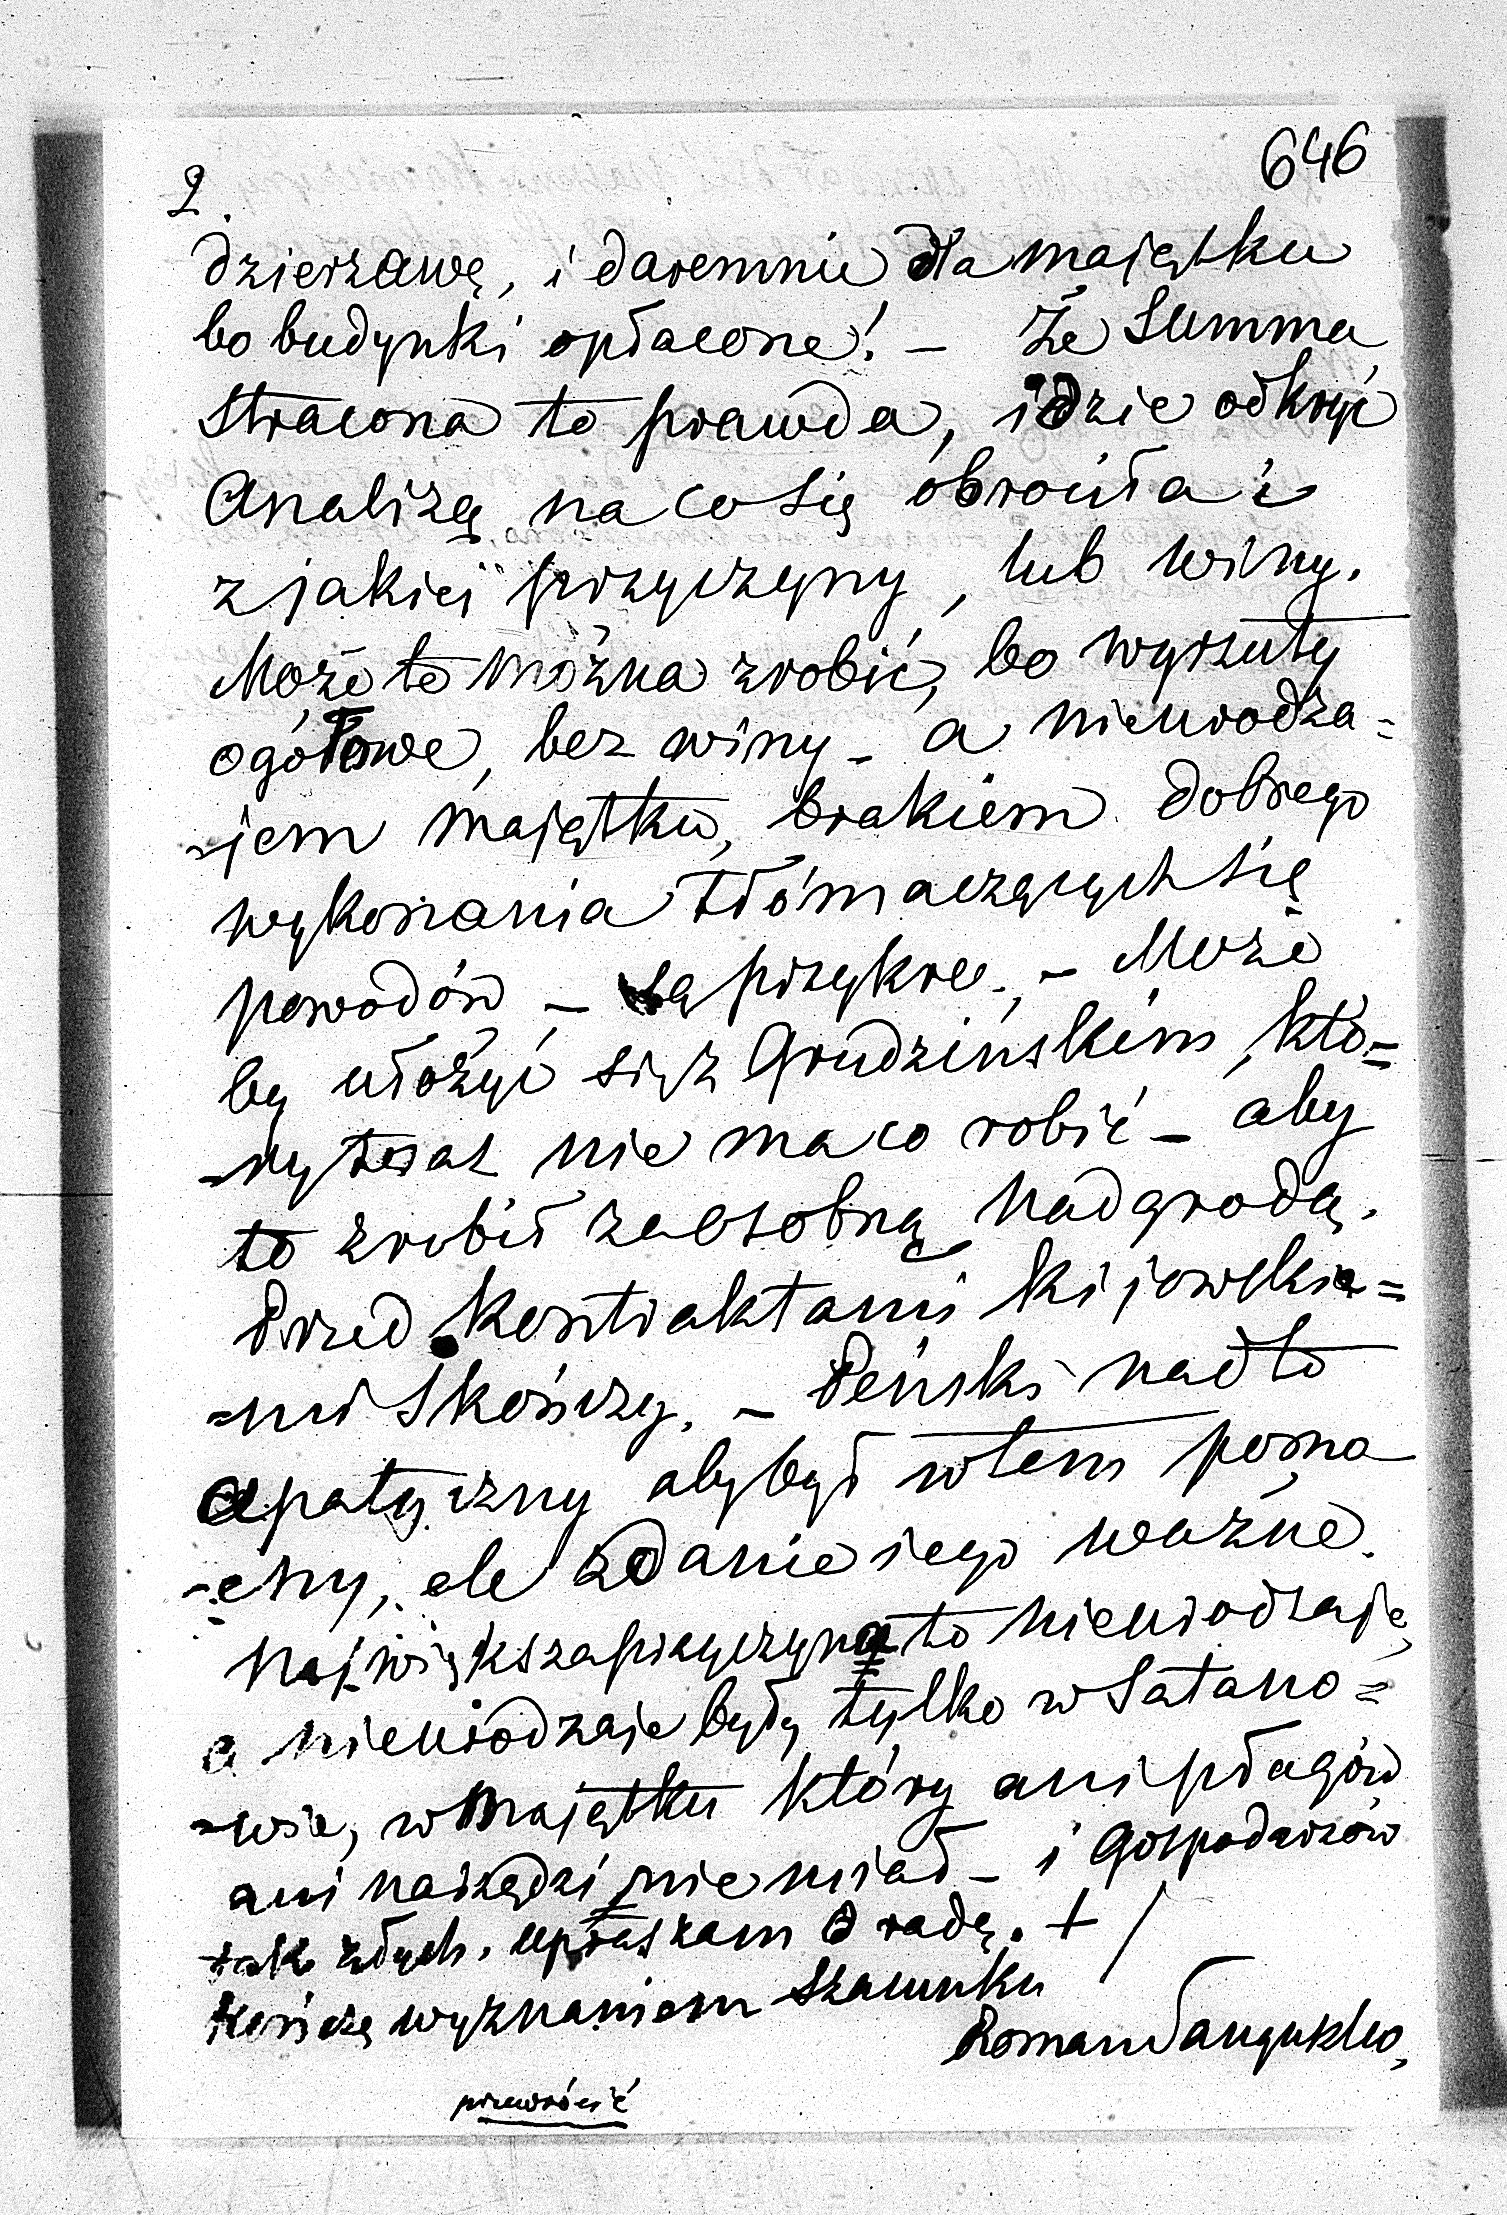 646
2.
dzierżawę, i daremnie dla majątku
bo budynki opłacone! – Że Summa
stracona to prawda, idzie odkryć
Analizą na co się obróciła i
z jakiei przyczyny, lub winy.
Może to można zrobić, bo wyrzuty
ogółowe, bez winy – a nieurodza=
=jem majątku, brakiem dobrego
wykonania tłómaczących się
powodów – są przykre. – Może
by ułożyć się z Grudzińskim, któ=
=ry teraz nie ma co robić – aby
to zrobił za osobną nadgrodą.
Przed Kontraktami kijowskie=
=mi skończy. – Peński nadto
apatyczny aby był w tem pomo
=cny, ale zdanie iego ważne.
Największa przyczyna to nieurodzaje,
a nieurodzaje były tylko w Satano=
=wie, w majątku który ani pługów
ani narzędzi nie miał – i Gospodarzów
tak złych. upraszam o radę. + /
Kończę wyznaniem szacunku
Roman Sanguszko,
przewrócić